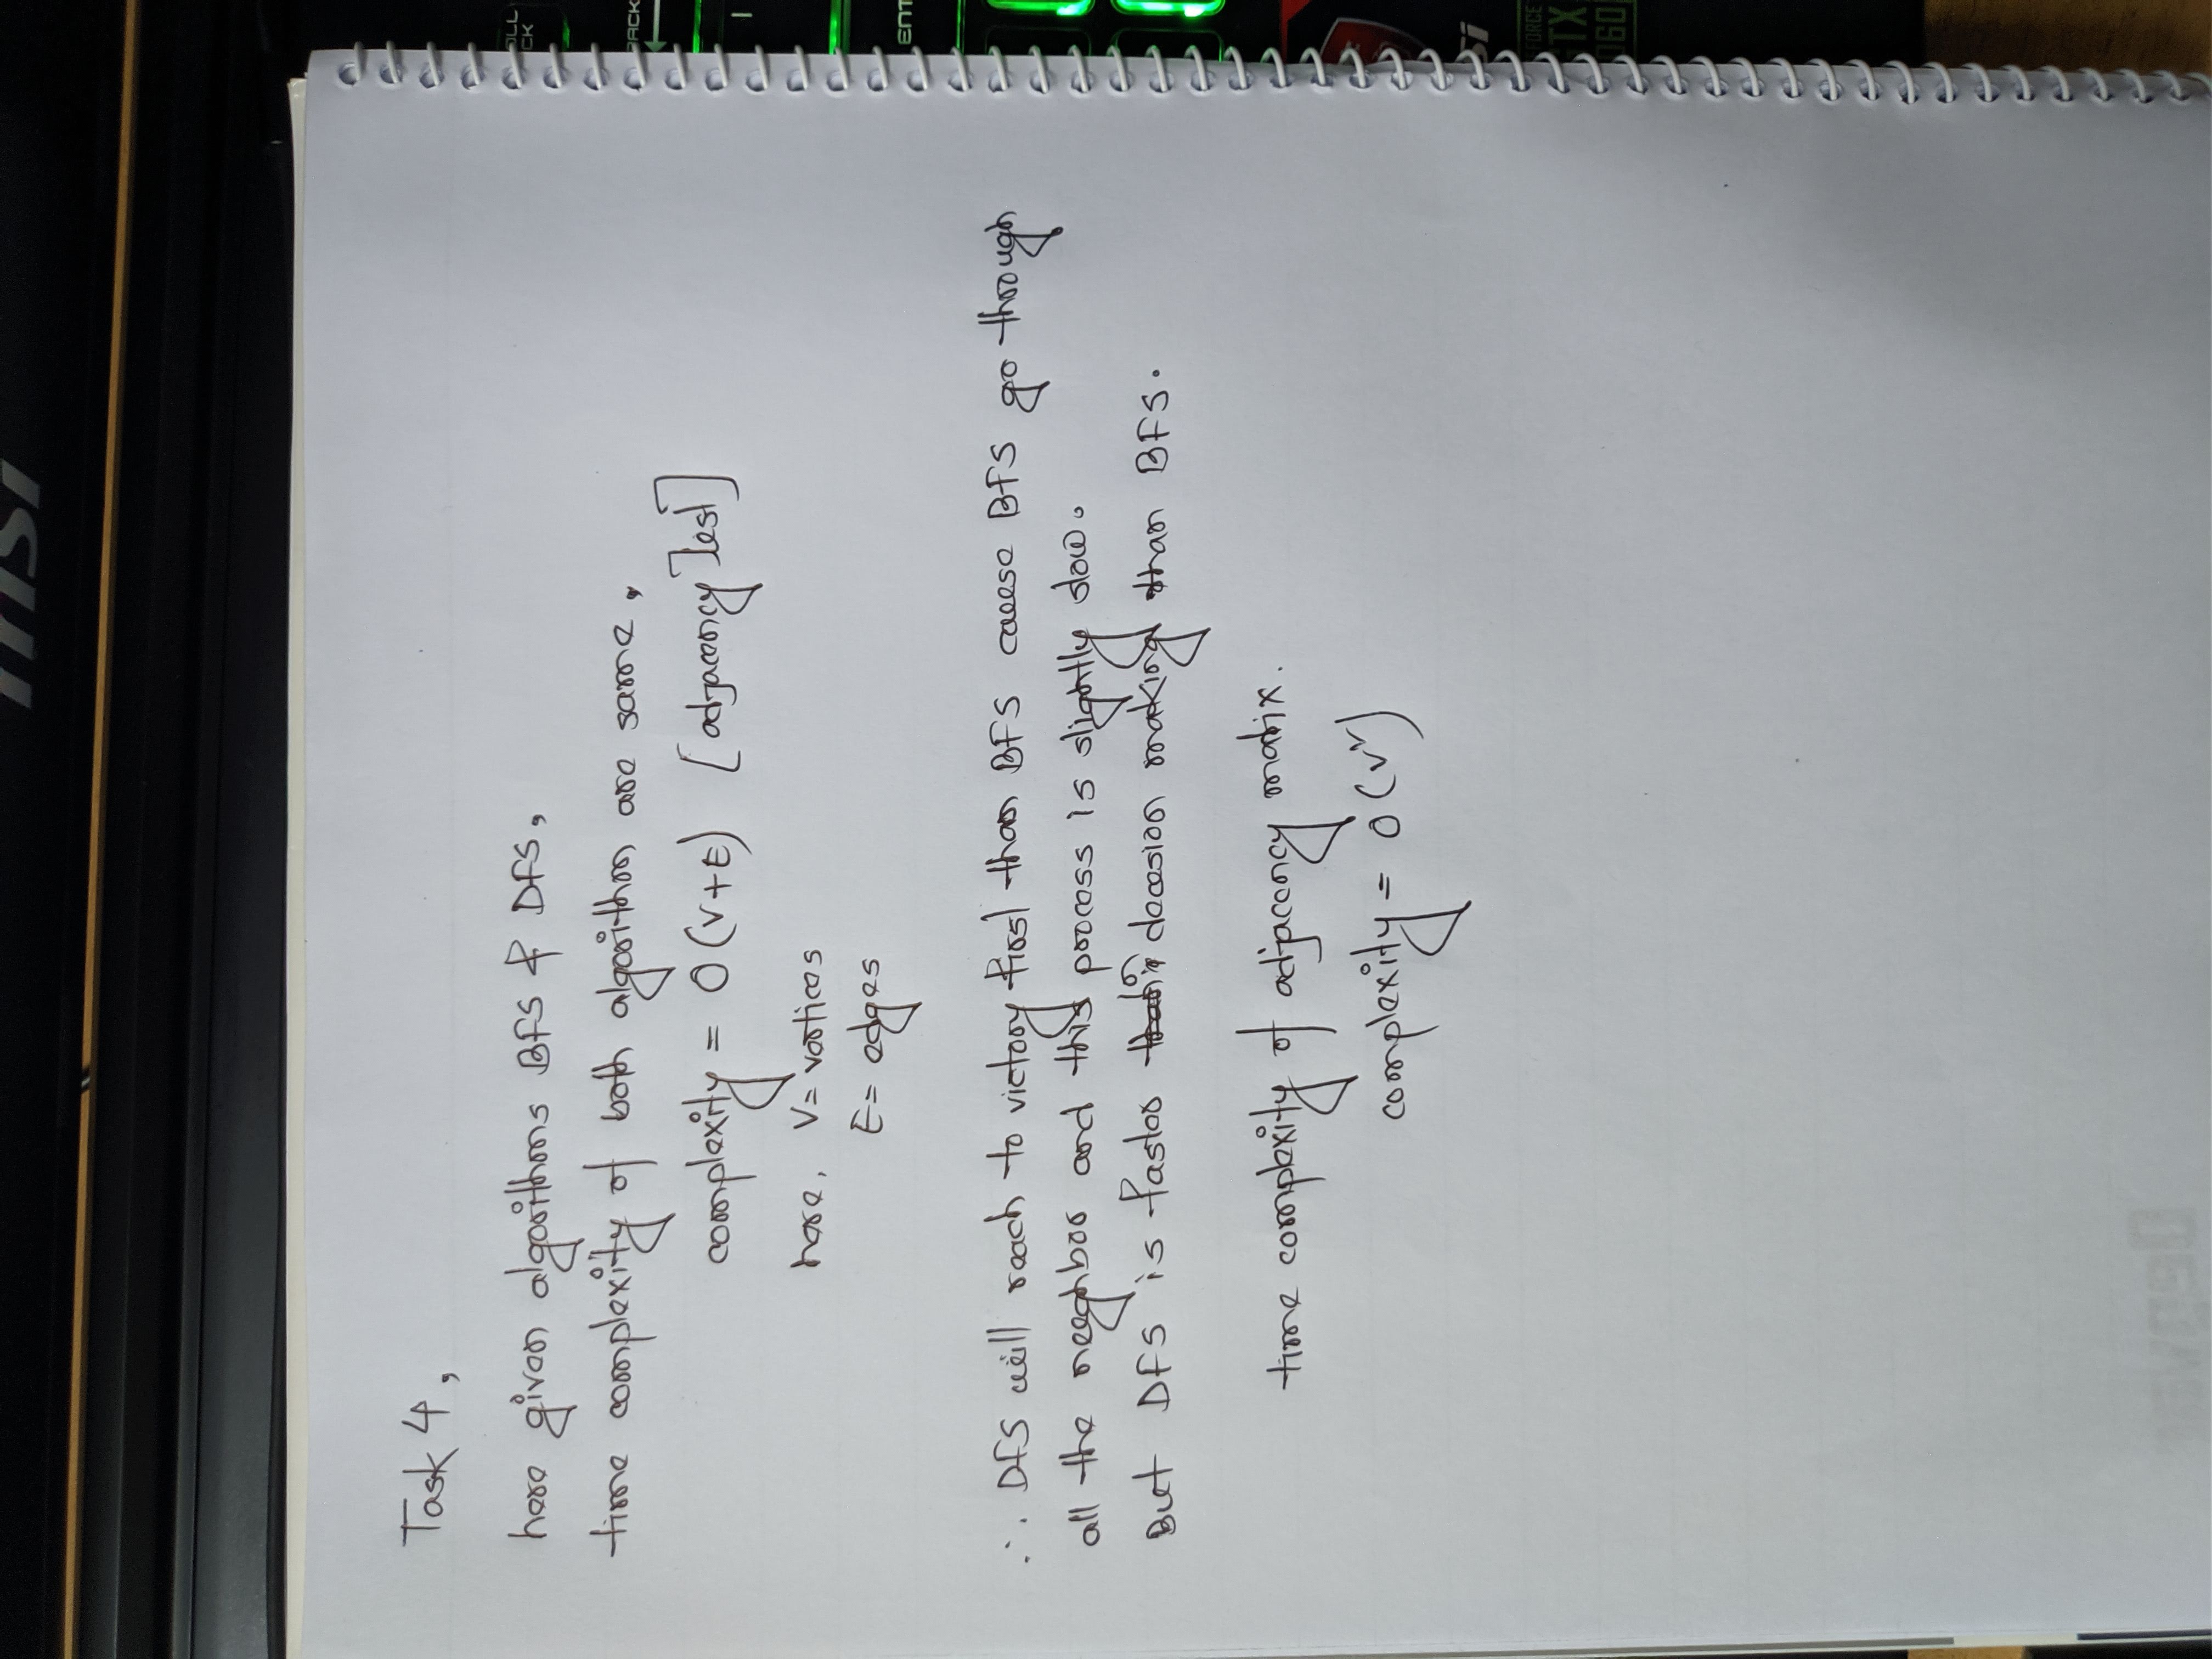 msi
Task 4,
here given algorithms BFS & DFS,
time complexity of both algorithm are same,
complexity = O(V+E) [adjacency List]
here, V= vertices
E= edges
∴ DFS will reach to victory first than BFS cause BFS go through
all the neighbor and this process is slightly slow.
But DFS is faster in decesion making than BFS.
time complexity of adjacency matix.
complexity = O(V²)
ENT
GTX